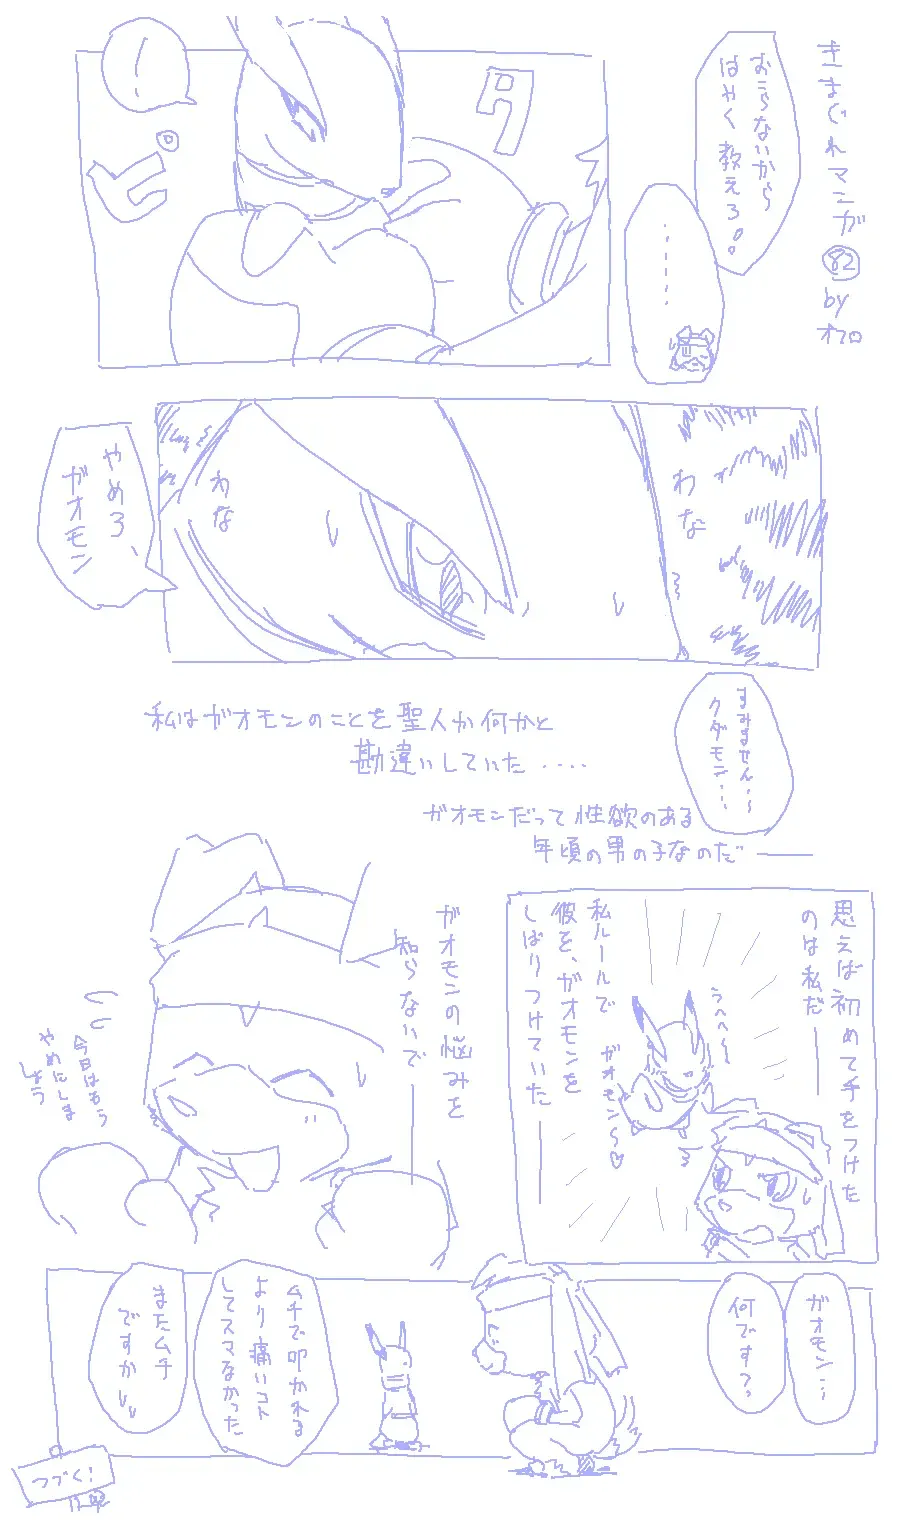 きまぐれマンガ
82
by
オフロ
おこらないから
はやく教えろ。。
………
ピタ
やめろ、
ガオモン
わな
わな
すみません…
クダモン…
私はガオモンのことを聖人か何かと
勘違いしていた....
ガオモンだって性欲のある
年頃の男の子なのだ——
思えば初めて手をつけた
のは私だ——
うへへ〜
ガオモン〜♡
私ルールで
彼を、ガオモンを
しばりつけていた——
ガオモンの悩みを
知らないで——
今日はもう
やめにしま
しょう
ガオモン…
何です?
ムチで叩かれる
より痛いコト
してスマなかった
またムチ
ですか
つづく!